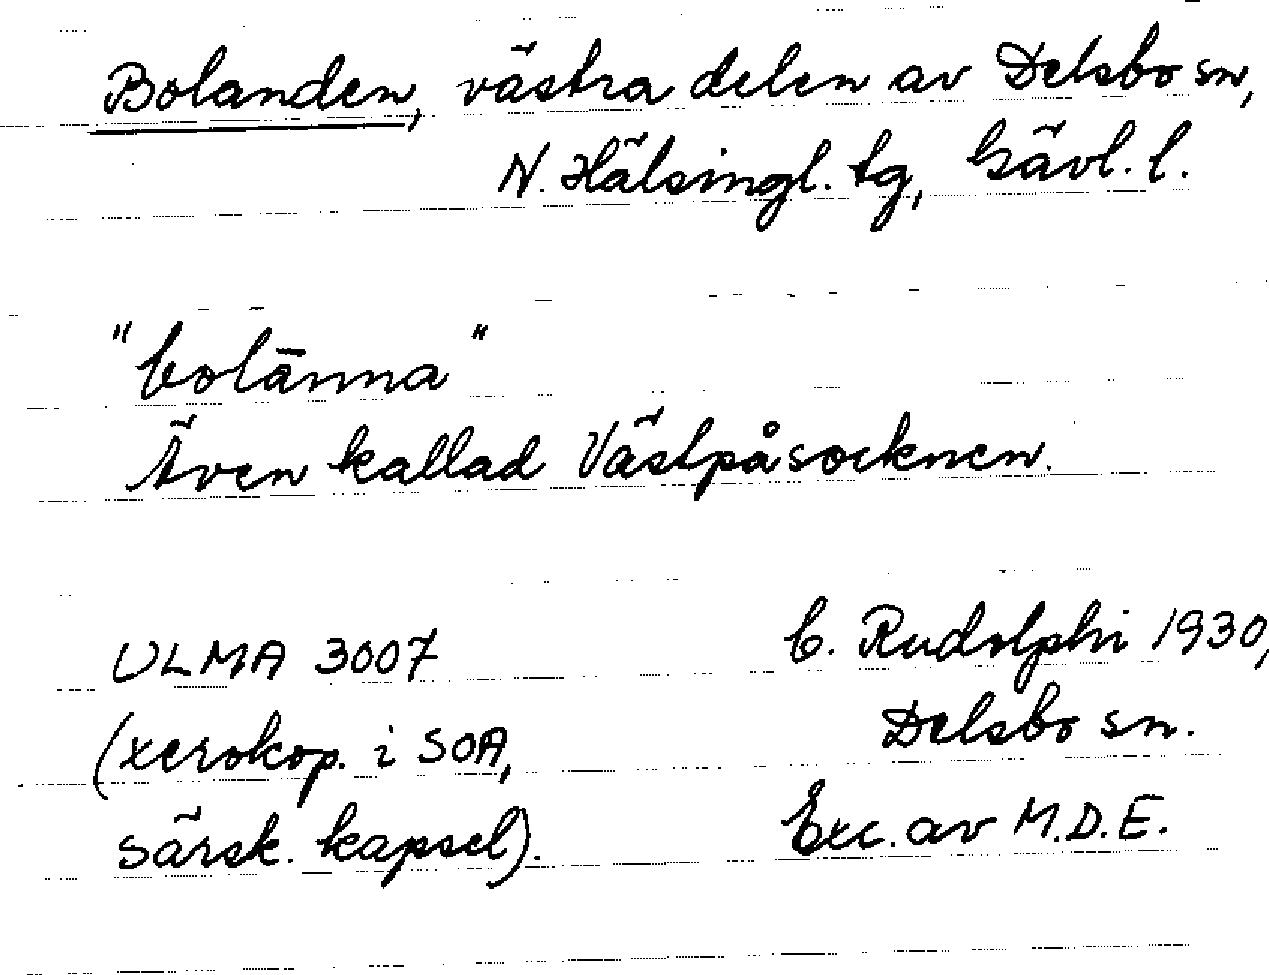 Bolanden, västra delen av Delsbo sn,
N. Hälsingl. tg, Gävl. l.
"bolänna"
Även kallad Västpåsocknen.
ULMA 3007
C. Rudolphi 1930,
Delsbo sn.
(xerokop. i SOA,
särsk. kapsel).
Exc. av M.D.E.